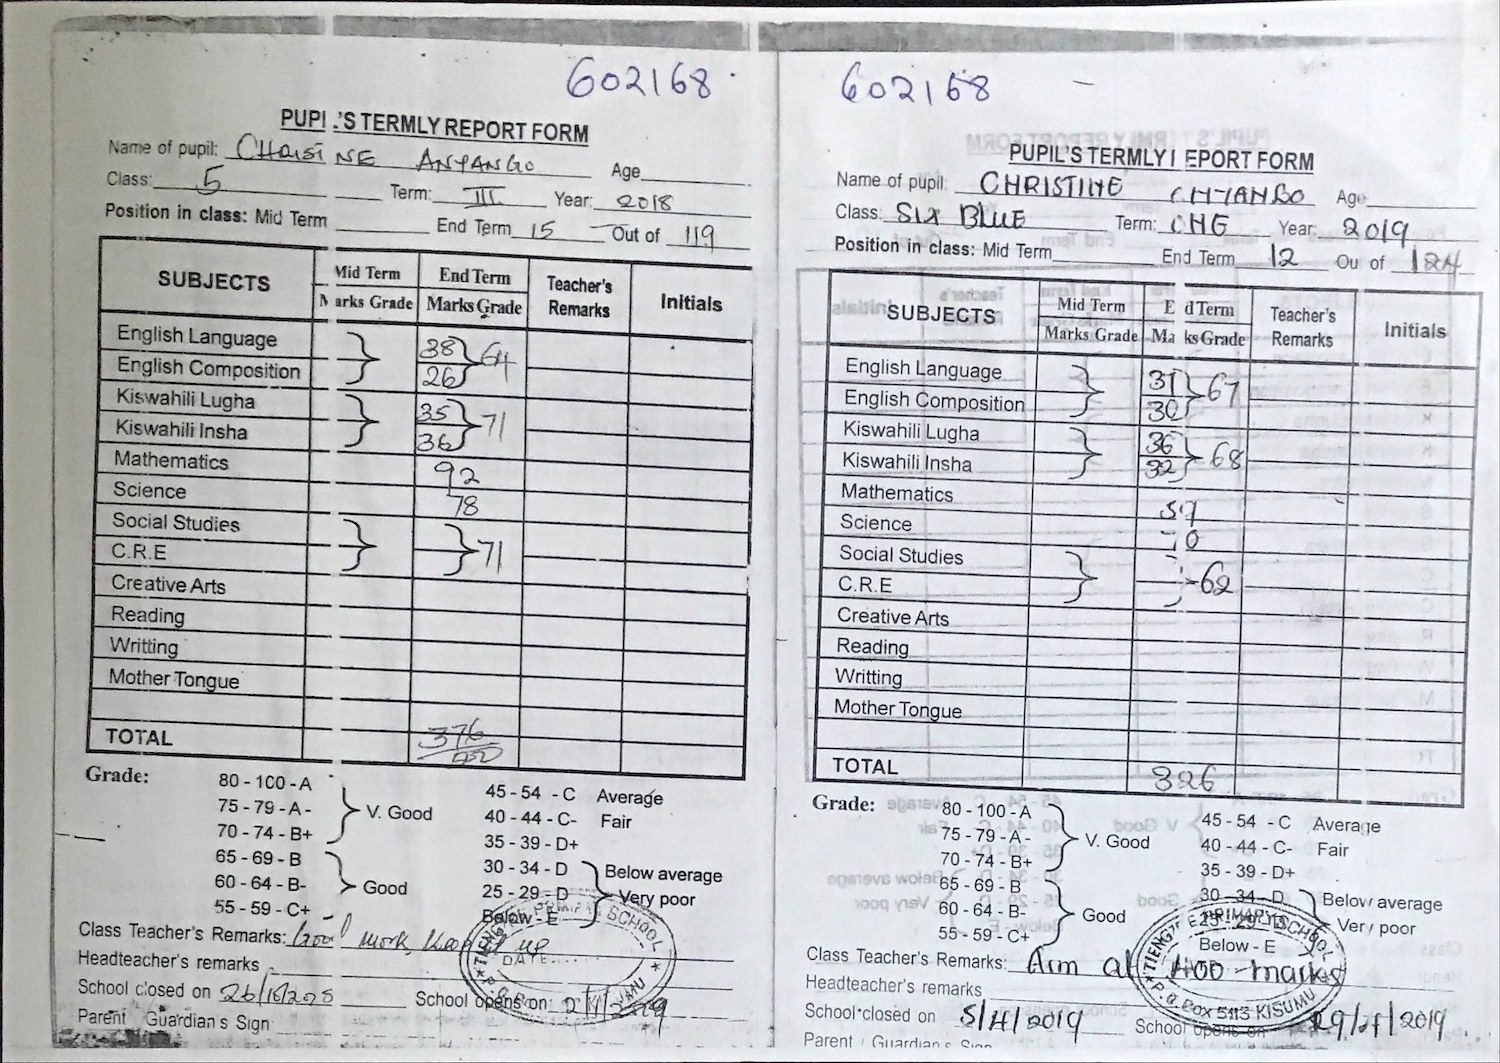 602168
PUPI 'S TERMLY REPORT FORM
Name of pupil: CHRISTINE ANYANGO Age
Class: 5 Term: III Year: 2018
Position in class: Mid Term End Term 15 Out of 119
SUBJECTS Mid Term End Term Teacher's Remarks Initials
Marks Grade Marks Grade
English Language 38 64
English Composition 26
Kiswahili Lugha 35 71
Kiswahili Insha 36
Mathematics 92
Science 78
Social Studies 71
C.R.E
Creative Arts
Reading
Writting
Mother Tongue
TOTAL 376
Grade:
80 - 100 - A
75 - 79 - A - V. Good
70 - 74 - B+
65 - 69 - B
60 - 64 - B- Good
55 - 59 - C+
45 - 54 - C Average
40 - 44 - C- Fair
35 - 39 - D+
30 - 34 - D Below average
25 - 29 - D Very poor
Below - E
Class Teacher's Remarks: Good work, keep it up
Headteacher's remarks
School closed on School opens on:
Parent Guardian's Sign
602168
PUPIL'S TERMLY EPORT FORM
Name of pupil: CHRISTINE Age
Class: SIX BLUE Term: ONE Year: 2019
Position in class: Mid Term End Term 12 Ou of 124
SUBJECTS Mid Term E d Term Teacher's Remarks Initials
Marks Grade Ma ks Grade
English Language 37 67
English Composition 30
Kiswahili Lugha 36 68
Kiswahili Insha 32
Mathematics 59
Science
Social Studies 62
C.R.E
Creative Arts
Reading
Writting
Mother Tongue
TOTAL 326
Grade:
80 - 100 - A
75 - 79 - A- V. Good
70 - 74 - B+
65 - 69 - B
60 - 64 - B- Good
55 - 59 - C+
45 - 54 - C Average
40 - 44 - C- Fair
35 - 39 - D+
30 - 34 - D Below average
25 - 29 - D Very poor
Below - E
PRIMARY SCHOOL
P.O. Box 5113 KISUMU
Class Teacher's Remarks: Aim at 400 marks
Headteacher's remarks
School closed on 5/4/2019 School opens on 29/4/2019
Parent Guardian's Sign